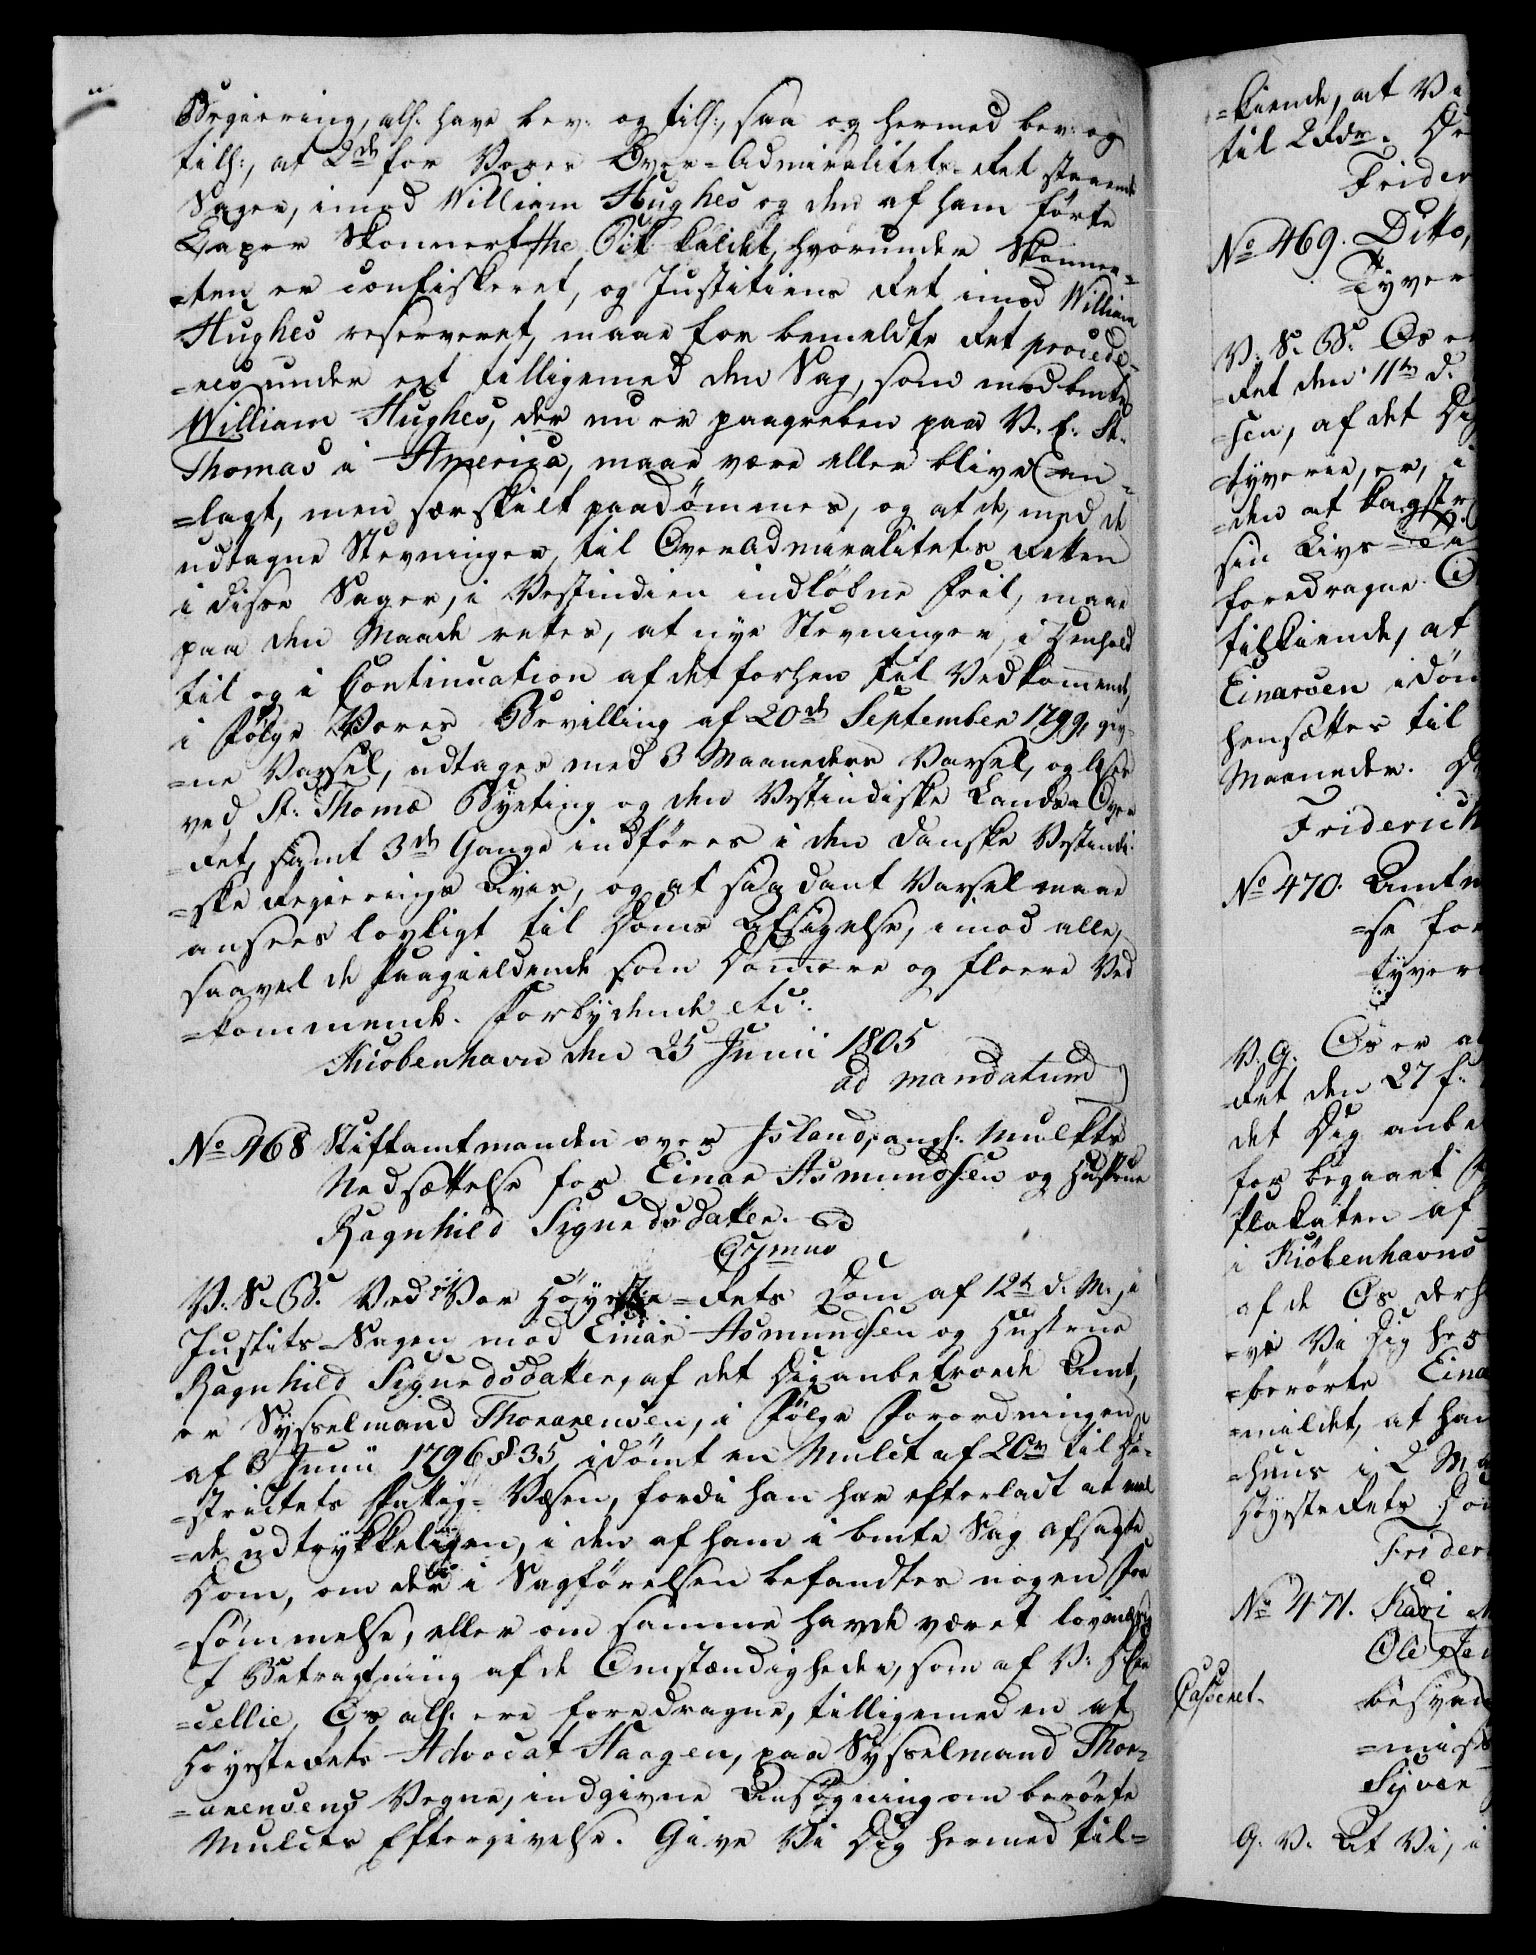 Regiering, alh: have bev: og tilh:, saa og hermed bev: og
tilh:, at 2de for Vores Over-Admiralitets-Ret staaende
Sager, imod William Hughes og den af ham førte
Caper Skonnert the Pit kaldet, hvorunder Skonner=
=ten er confiskeret, og Justitiens Ret imod William
Hughes reserveret, maae for bemeldte Ret procede=
=res under eet tilligemed den Sag, som mod bmte
William Hughes, der nu er paagreben paa V. E. St.
Thomas i America, maae være eller blive an=
=lagt, men særskilt paadømmes, og at de, med de
udtagne Stevninger til OverAdmiralitets Retten
i disse Sager, i Vestindien indløbne Feil, maae
paa den Maade rettes, at nye Stevninger, i Henhold
til og i Continuation af det forhen til Vedkommende,
i Følge Vores Bevilling af 20de September 1799, giv=
=ne Varsel, udtages med 3 Maaneders Varsel, og læses
ved St: Thomæ Byeting og den Vestindiske Lands-Over
=Ret, samt 3de Gange indføres i den danske Vestindi=
=ske Regierings Avis, og at saadant Varsel maae
ansees lovligt til Doms Afsigelse, imod alle,
saavel de Paagieldende som Dommere og fleere Ved
=kommende. Forbydende etc:
Kiøbenhavn den 25 Junii 1805
ad mandatum
No 468 Stiftamtmanden over Island, angl: Mulkts
Nedsættelse for Einar Asmundsen og Hustrue
Ragnhild Sigurdsdatter.
V. S. B. Ved Vor Høyeste-Rets Dom af 12te d. M., i
Justits-Sagen mod Einar Asmundsen og Hustrue
Ragnhild Sigurdsdatter, af det Dig anbetroede Amt,
er Sysselmand Thorarensen, i Følge Forordningen
af 3 Junii 1796 §. 35, idømt en Mulct af 20 rdr til Di=
=strictets Fattig-Væsen, fordi han har efterladt at mel
=de udtrykkeligen, i den af ham i bmte Sag afsagte
Dom, om der i Sagførelsen befandtes nogen For
=sømmelse, eller om samme havde været lovmæssig
I Betragtning af de Omstændigheder, som af V: D: Can
=cellie, Os alh. ere foredragne, tilligemed en af
Høyesterets Advocat Haagen, paa Sysselmand Thor=
=arensens Vegne, indgivne Ansøgning om berørte
Mulcts Eftergivelse. Give Vi Dig hermed til=
=kiende, at Vi
til 2 Rdr. De
Frider
No 469. Ditto,
Tyver
V. S. B. Os er
=Ret den 11te d.
=sen, af det Dig
tyverie, er, i
=den at kagstr
sin Livs-Ti
foredragne O
tilkiende, at
Einarsen idøm
hensættes til
Maaneder. D
Friderich
No 470. Amtm
=se for
tyveri
V. G. Os er al
Ret den 27 f.
det Dig anbe
for begaaet
Plakaten af
i Kiøbenhavns
af de Os derh
=ve Vi Dig her
=berørte Eina
=mildet, at han
=huus i 2 M
Høyeste Rets Dom
Frider
No 471. Kari
Ole Je
Casseret. besvan
=mis
Syver
G. V. At Vi, i